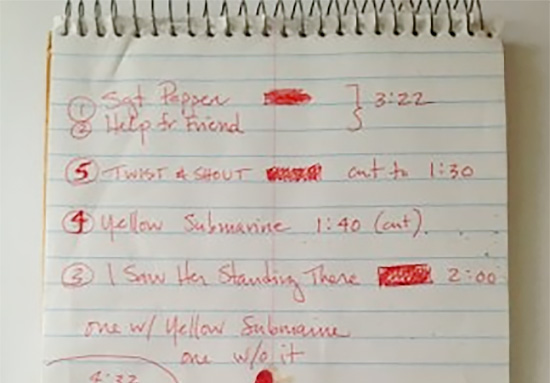 ① Sgt Pepper ] 3:22
② Help fr Friend
⑤ TWIST & SHOUT cut to 1:30
④ Yellow Submarine 1:40 (cut).
③ I Saw Her Standing There 2:00
one w/ Yellow Submaine
one w/o it
4:32